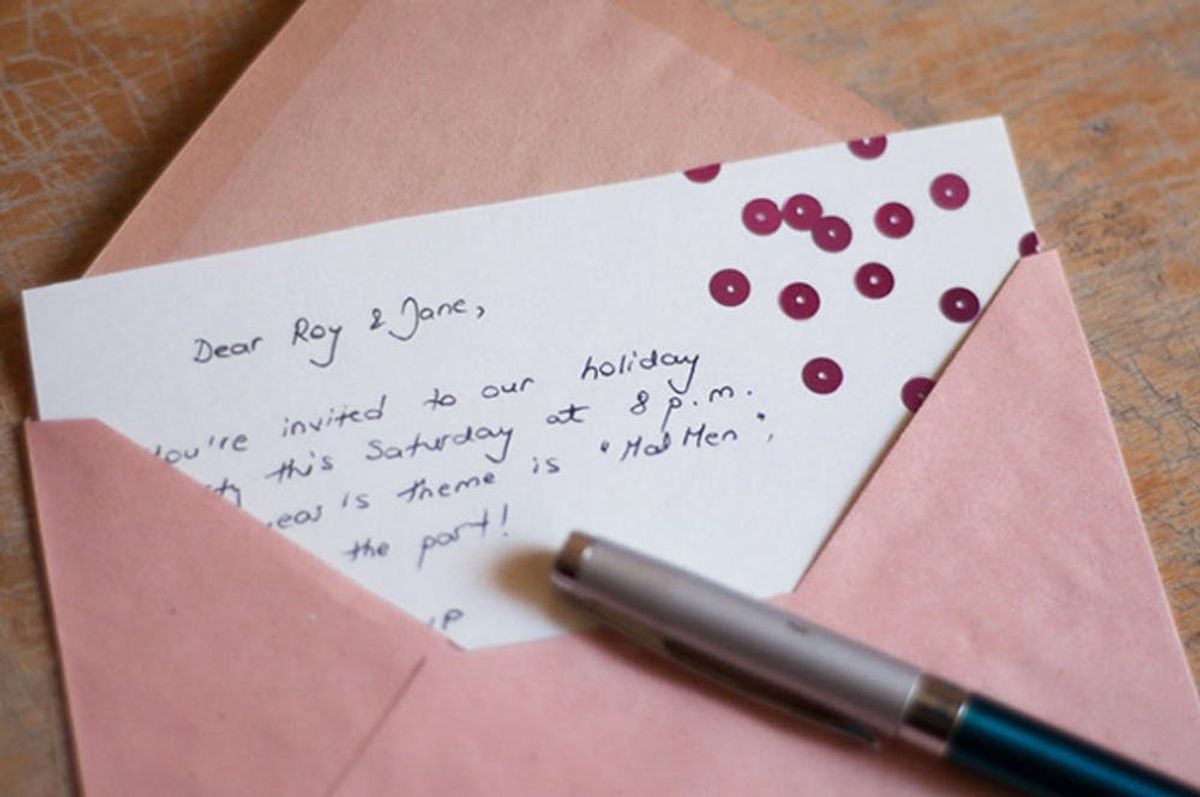 Dear Roy & Jane,
You're invited to our holiday
this Saturday at 8 p.m.
theme is "Mad Men",
the part!